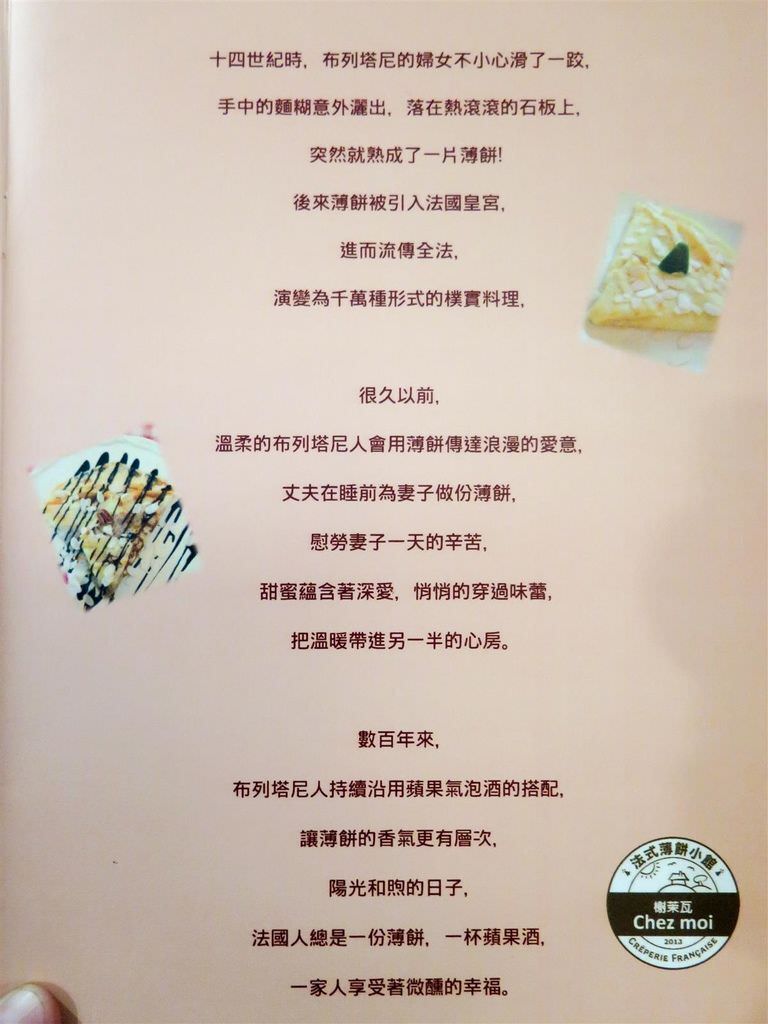 十四世紀時，布列塔尼的婦女不小心滑了一跤，
手中的麵糊意外灑出，落在熱滾滾的石板上，
突然就熟成了一片薄餅！
後來薄餅被引入法國皇宮，
進而流傳全法，
演變為千萬種形式的樸實料理，
很久以前，
溫柔的布列塔尼人會用薄餅傳達浪漫的愛意，
丈夫在睡前為妻子做份薄餅，
慰勞妻子一天的辛苦，
甜蜜蘊含著深愛，悄悄的穿過味蕾，
把溫暖帶進另一半的心房。
數百年來，
布列塔尼人持續沿用蘋果氣泡酒的搭配，
讓薄餅的香氣更有層次，
陽光和煦的日子，
法國人總是一份薄餅，一杯蘋果酒，
一家人享受著微醺的幸福。
法式薄餅小館
榭茉瓦
Chez moi
2013
CRÊPERIE FRANÇAISE